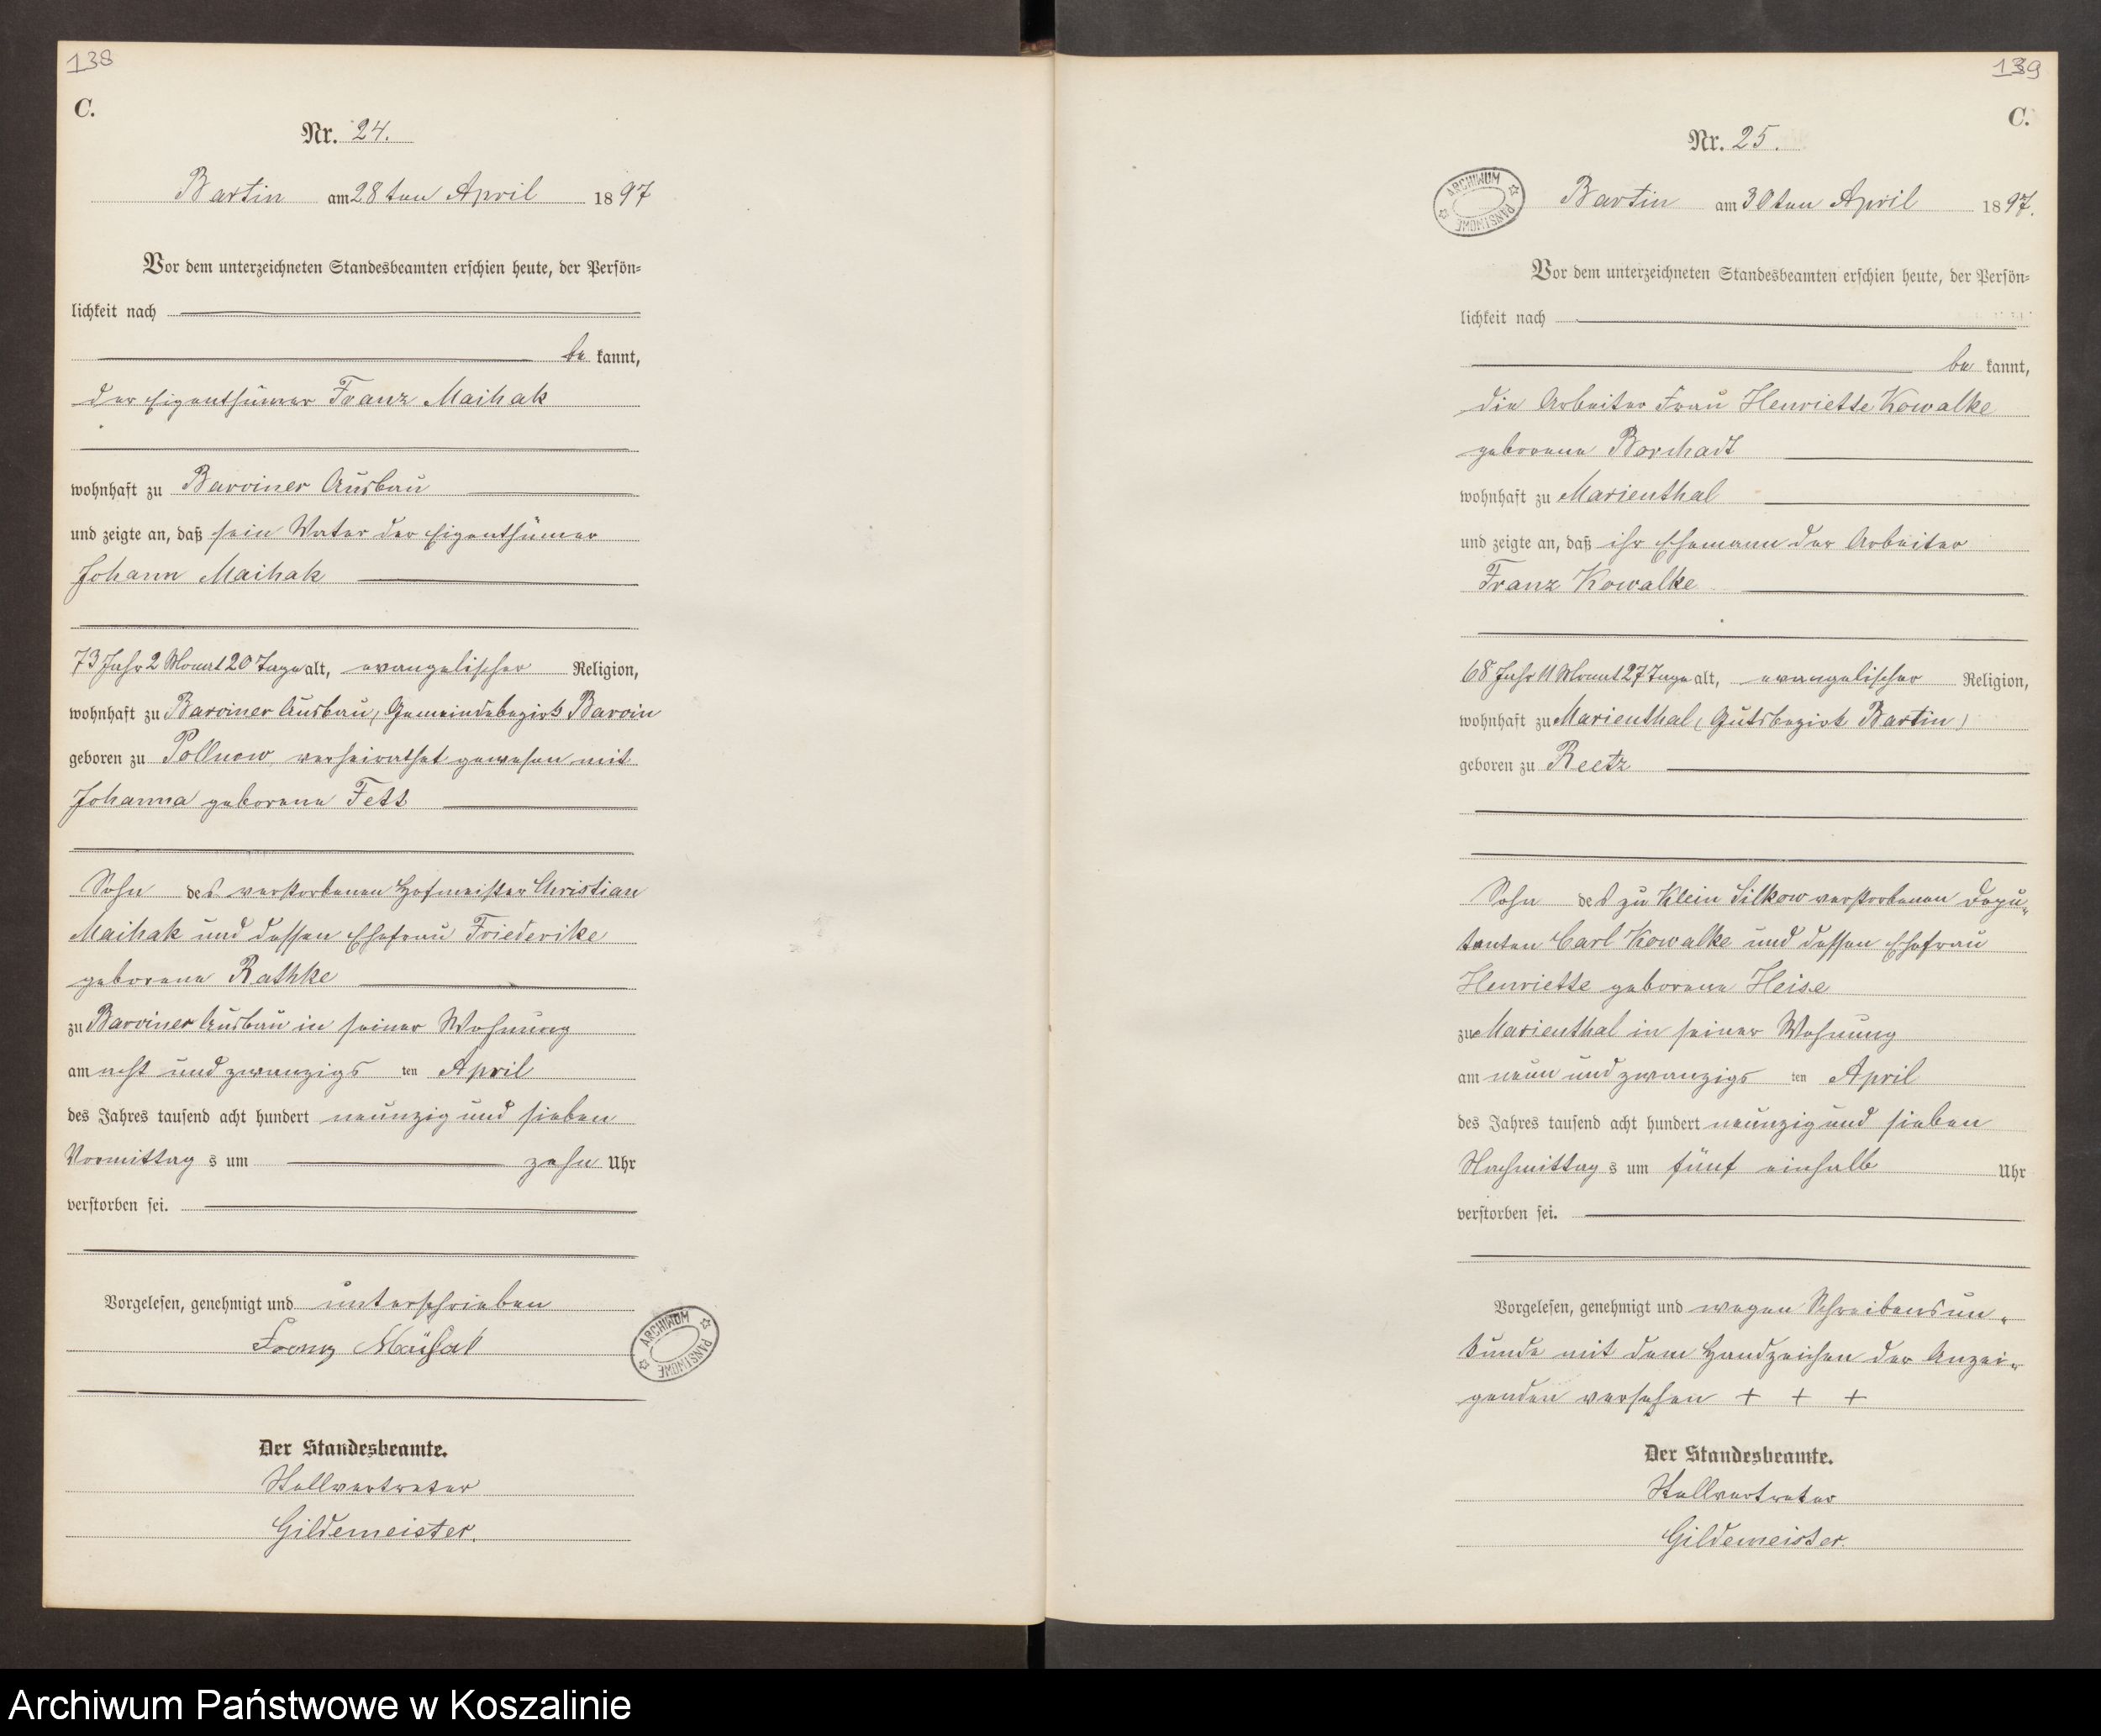 138
C.
Nr. 24.
Bartin am 28ten April 1897
Vor dem unterzeichneten Standesbeamten erschien heute, der Persön=
lichkeit nach
be kannt,
der Eigenthümer Franz Maihak
wohnhaft zu Barviner Ausbau
und zeigte an, daß sein Vater der Eigenthümer
Johann Maihak
73 Jahr 2 Monat 20 Tage alt, evangelischer Religion,
wohnhaft zu Barviner Ausbau, Gemeindebezirk Barvin
geboren zu Pollnow, verheirathet gewesen mit
Johanna geborene Fett
Sohn des verstorbenen Hofmeister Christian
Maihak und dessen Ehefrau Friederike
geborene Rathke
zu Barviner Ausbau in seiner Wohnung
am acht und zwanzigs ten April
des Jahres tausend acht hundert neunzig und sieben
Vormittag s um zehn Uhr
verstorben sei.
Vorgelesen, genehmigt und unterschrieben
Franz Maihak
ARCHIWUM PAŃSTWOWE
Der Standesbeamte.
Stellvertreter
Gildemeister.
139
C.
Nr. 25.
ARCHIWUM PAŃSTWOWE
Bartin am 30ten April 1897.
Vor dem unterzeichneten Standesbeamten erschien heute, der Persön=
lichkeit nach
be kannt,
die Arbeiter Frau Henriette Kowalke
geborene Borchadt
wohnhaft zu Marienthal
und zeigte an, daß ihr Ehemann der Arbeiter
Franz Kowalke
68 Jahr 11 Monat 27 Tage alt, evangelischer Religion,
wohnhaft zu Marienthal (Gutsbezirk Bartin)
geboren zu Reetz
Sohn des zu Klein Silkow verstorbenen Depu„
tanten Carl Kowalke und dessen Ehefrau
Henriette geborene Heise
zu Marienthal in seiner Wohnung
am neun und zwanzigs ten April
des Jahres tausend acht hundert neunzig und sieben
Nachmittag s um fünf einhalb Uhr
verstorben sei.
Vorgelesen, genehmigt und wegen Schreibensun„
kunde mit dem Handzeichen der Anzei„
genden versehen + + +
Der Standesbeamte.
Stellvertreter
Gildemeister.
Archiwum Państwowe w Koszalinie